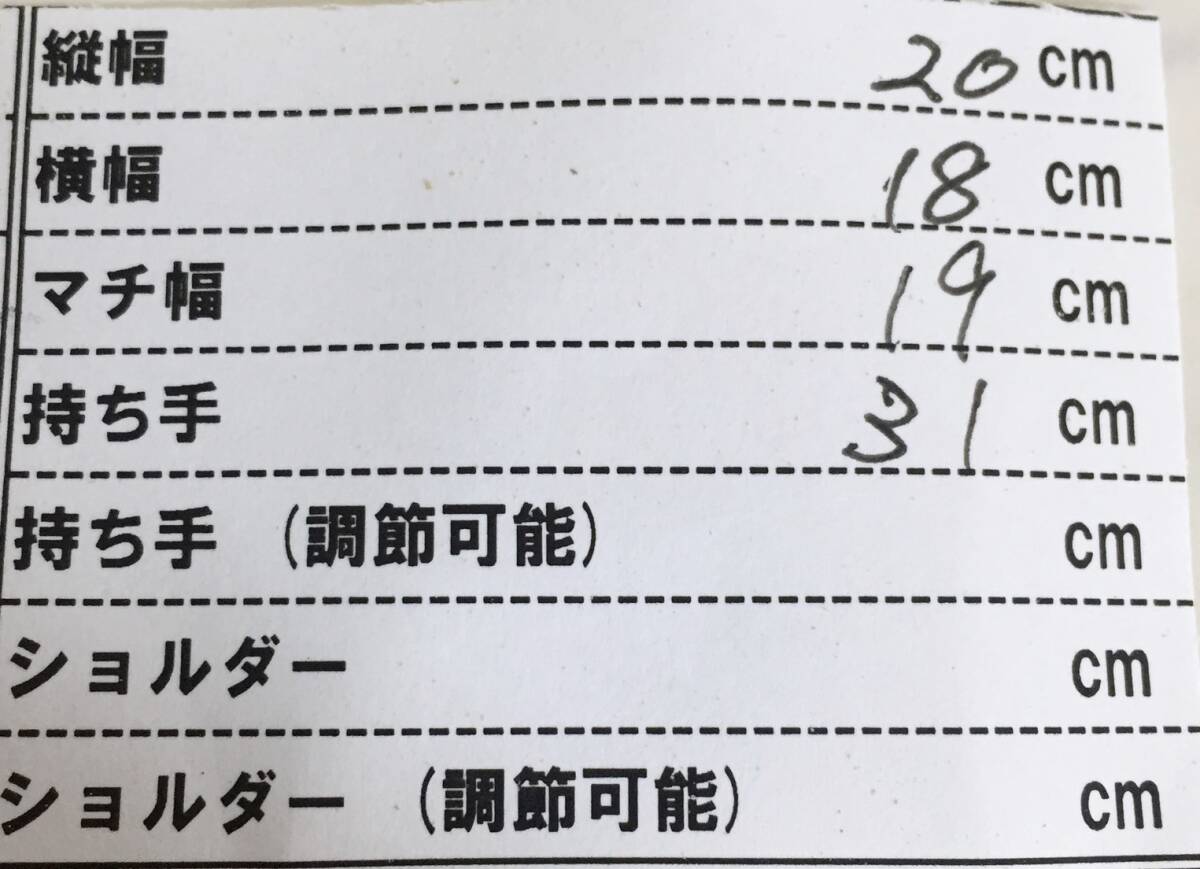 縦幅 20 cm
横幅 18 cm
マチ幅 19 cm
持ち手 31 cm
持ち手 (調節可能) cm
ショルダー cm
ショルダー (調節可能) cm